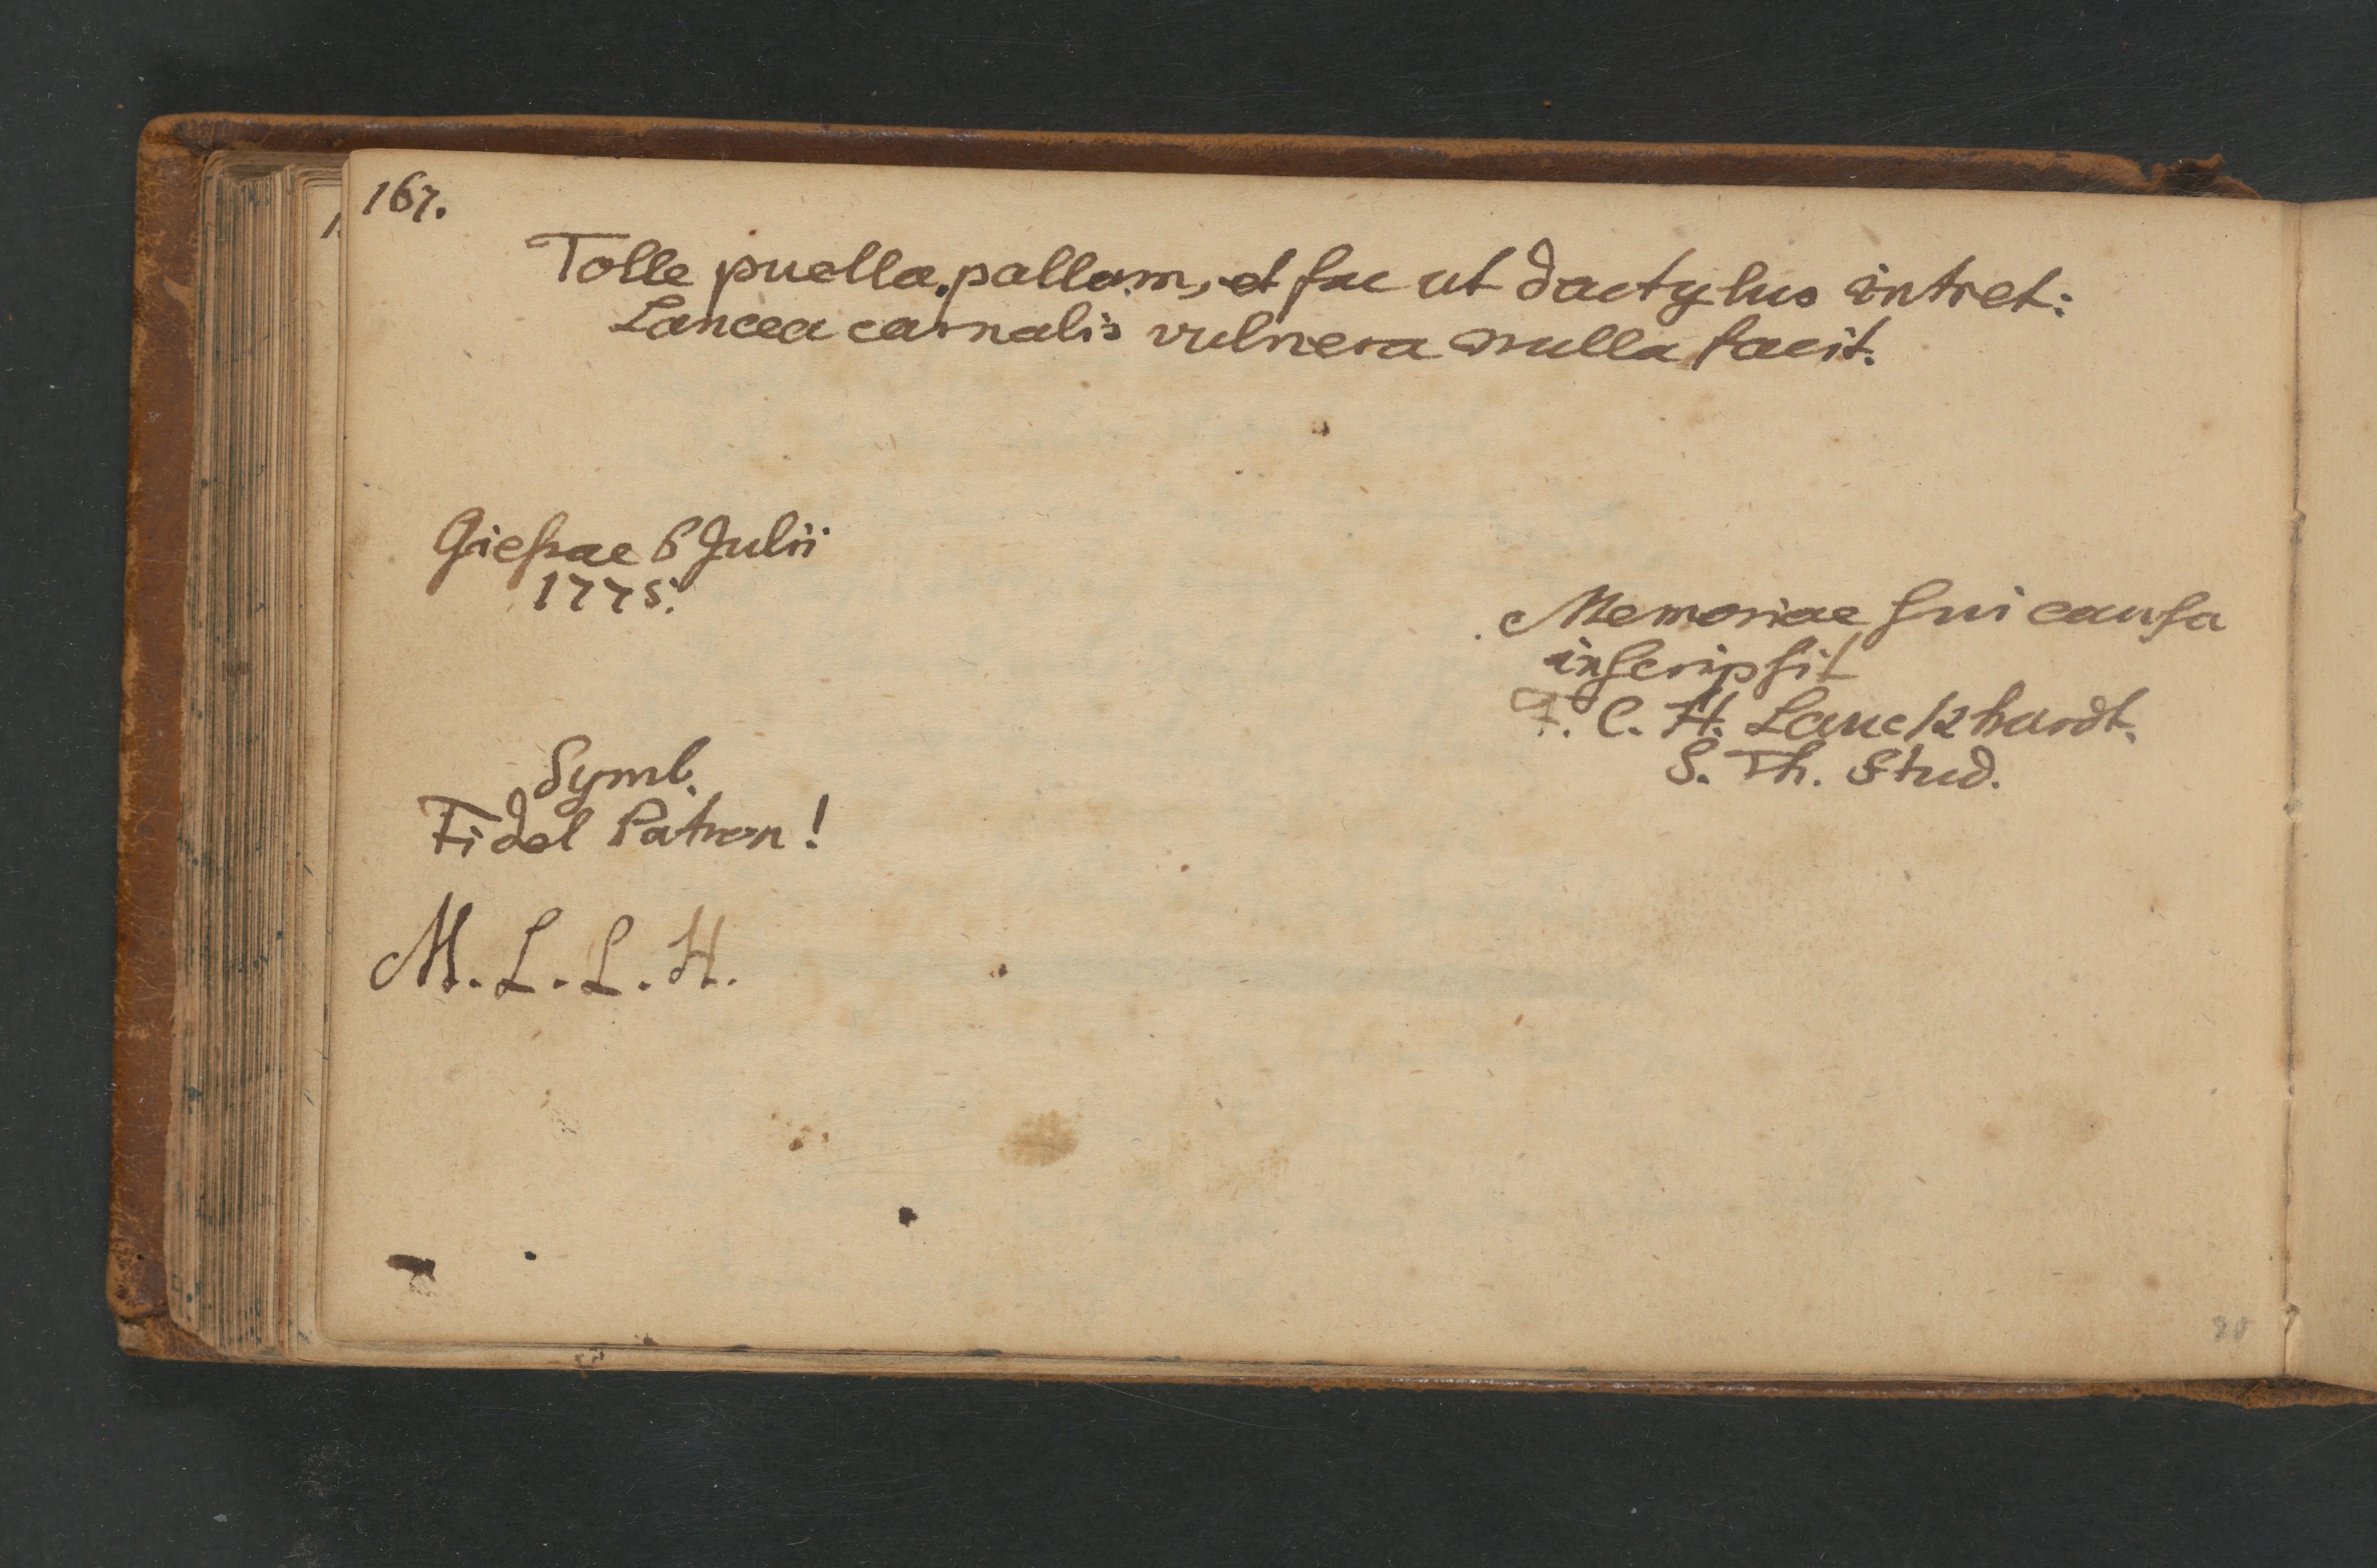 167.
Tolle puella pallam, et fac ut dactylus intret:
Lancea carnalis vulnera nulla facit.
Gießae 6 Julii
1775.
Memoriae ſui cauſa
inſcripſit
F. C. H. Lauckhardt.
S. Th. Stud.
Symb.
Fidel Patron!
M. L. L. H.